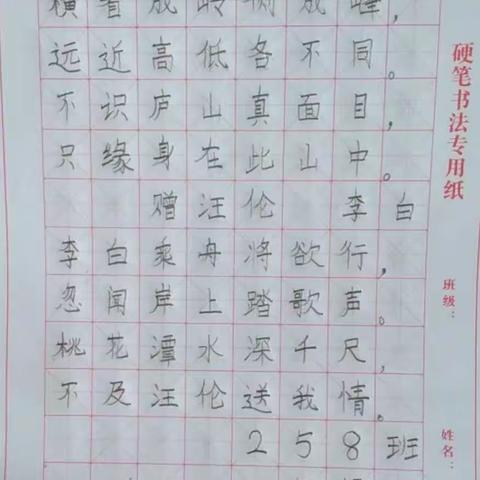 横看成岭侧成峰，
远近高低各不同。
不识庐山真面目，
只缘身在此山中。
赠汪伦 李白
李白乘舟将欲行，
忽闻岸上踏歌声。
桃花潭水深千尺，
不及汪伦送我情。
258班
硬笔书法专用纸
班级：
姓名：